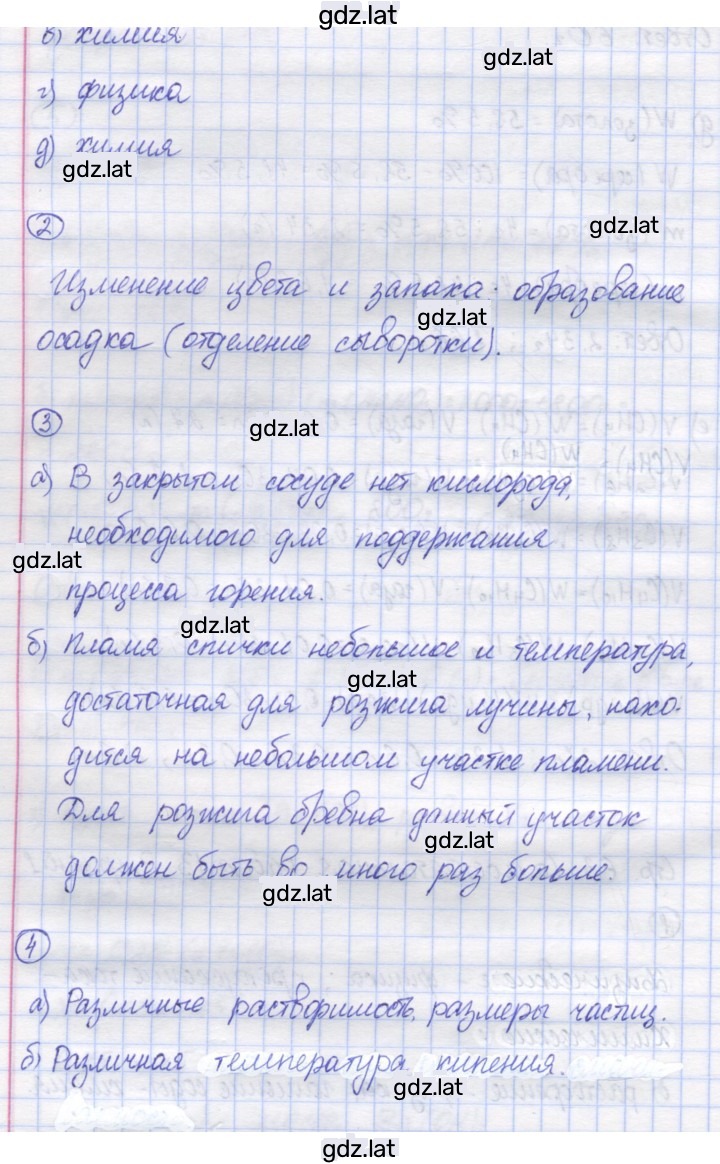 gdz.lat
в) химия
gdz.lat
г) физика
д) химия
gdz.lat
2
gdz.lat
Изменение цвета и запаха. образование
gdz.lat
осадка (отделение сыворотки).
3
gdz.lat
а) В закрытом сосуде нет кислорода,
необходимого для поддержания
gdz.lat
процесса горения.
gdz.lat
б) Пламя спички небольшое и температура,
gdz.lat
достаточная для розжига лучины, нахо-
дится на небольшом участке пламени.
Для розжига бревна данный участок
gdz.lat
должен быть во много раз больше.
gdz.lat
4
а) Различные растворимость, размеры частиц.
б) Различная температура кипения.
gdz.lat
gdz.lat